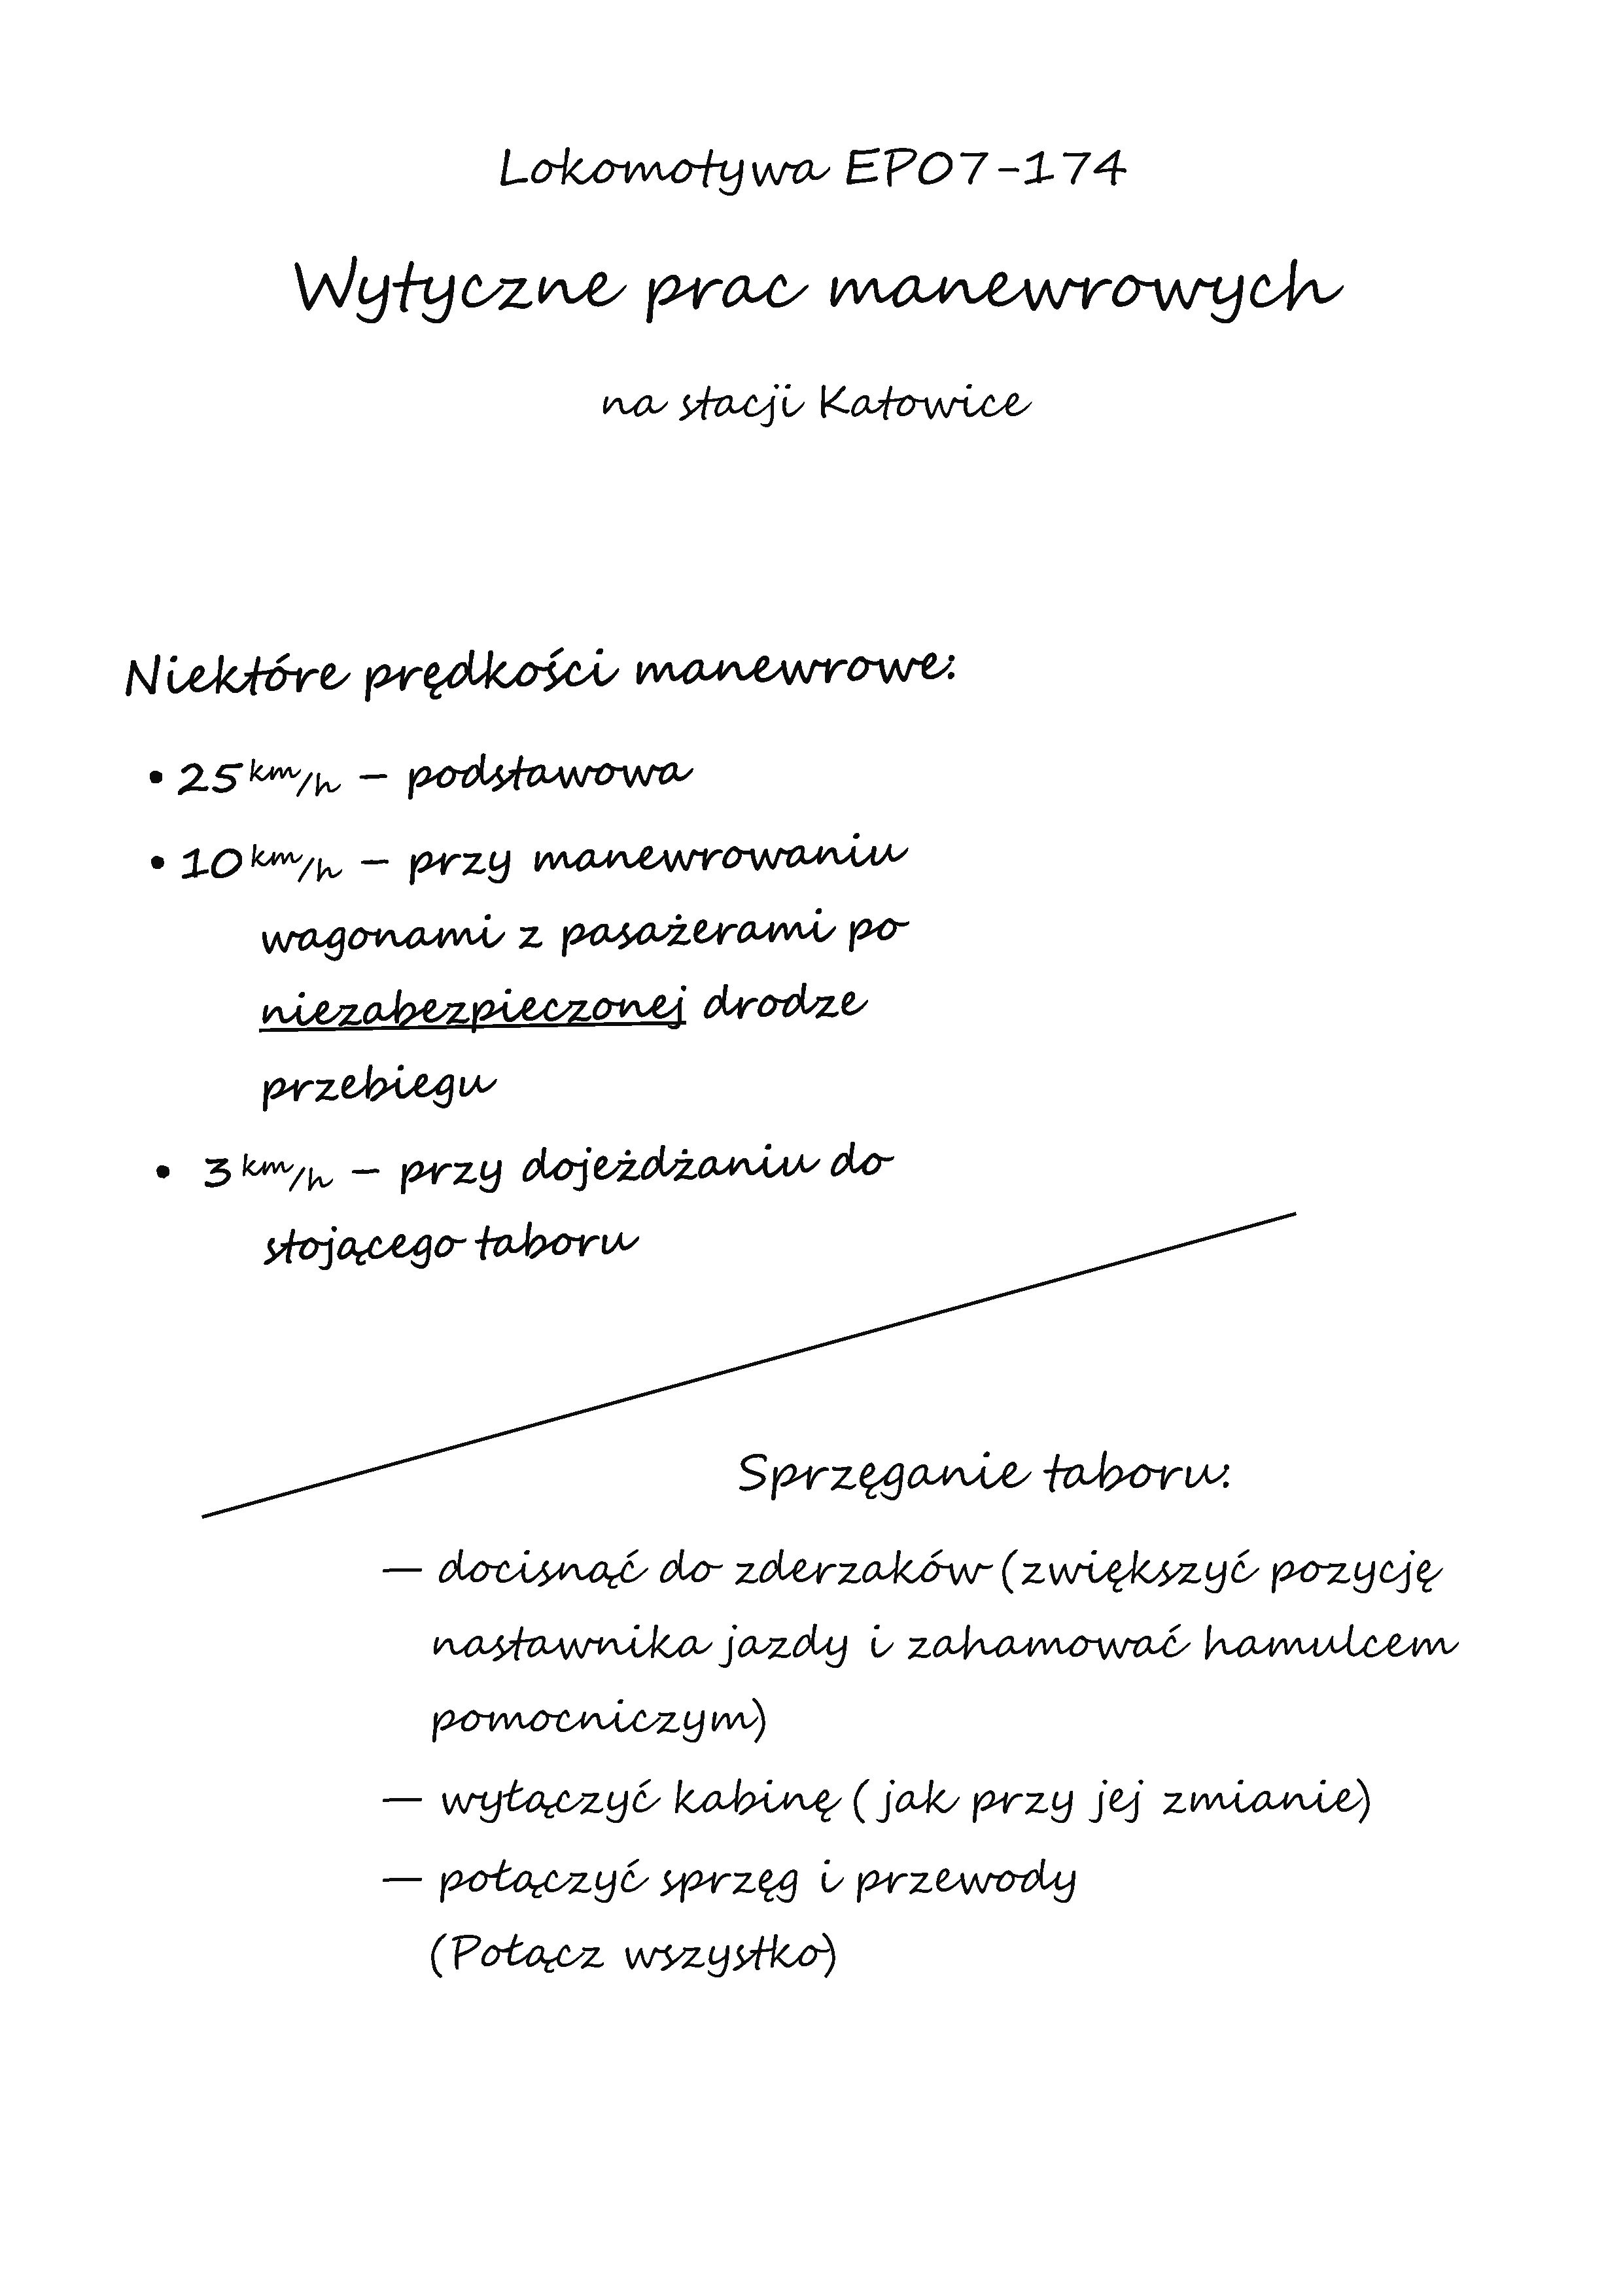 Lokomotywa EP07-174
Wytyczne prac manewrowych
na stacji Katowice
Niektóre prędkości manewrowe:
• 25 km/h – podstawowa
• 10 km/h – przy manewrowaniu
wagonami z pasażerami po
niezabezpieczonej drodze
przebiegu
• 3 km/h – przy dojeżdżaniu do
stojącego taboru
Sprzęganie taboru:
— docisnąć do zderzaków (zwiększyć pozycję
nastawnika jazdy i zahamować hamulcem
pomocniczym)
— wyłączyć kabinę (jak przy jej zmianie)
— połączyć sprzęg i przewody
(Połącz wszystko)